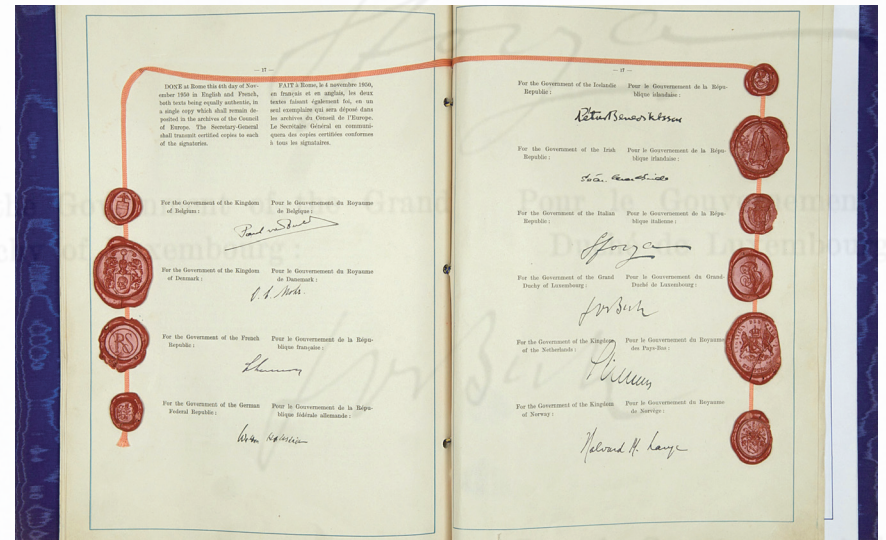 — 17 —
DONE at Rome this 4th day of Nov-
ember 1950 in English and French,
both texts being equally authentic, in
a single copy which shall remain de-
posited in the archives of the Council
of Europe. The Secretary-General
shall transmit certified copies to each
of the signatories.
FAIT à Rome, le 4 novembre 1950,
en français et en anglais, les deux
textes faisant également foi, en un
seul exemplaire qui sera déposé dans
les archives du Conseil de l'Europe.
Le Secrétaire Général en communi-
quera des copies certifiées conformes
à tous les signataires.
For the Government of the Kingdom
of Belgium :
Pour le Gouvernement du Royaume
de Belgique :
For the Government of the Kingdom
of Denmark :
Pour le Gouvernement du Royaume
de Danemark :
For the Government of the French
Republic :
Pour le Gouvernement de la Répu-
blique française :
For the Government of the German
Federal Republic :
Pour le Gouvernement de la Répu-
blique fédérale allemande :
For the Government of the Icelandic
Republic :
Pour le Gouvernement de la Répu-
blique islandaise :
For the Government of the Irish
Republic :
Pour le Gouvernement de la Répu-
blique irlandaise :
For the Government of the Italian
Republic :
Pour le Gouvernement de la Répu-
blique italienne :
Sforza
For the Government of the Grand
Duchy of Luxembourg :
Pour le Gouvernement du Grand-
Duché de Luxembourg :
For the Government of the Kingdom
of the Netherlands :
Pour le Gouvernement du Royaume
des Pays-Bas :
For the Government of the Kingdom
of Norway :
Pour le Gouvernement du Royaume
de Norvège :
Halvard M. Lange